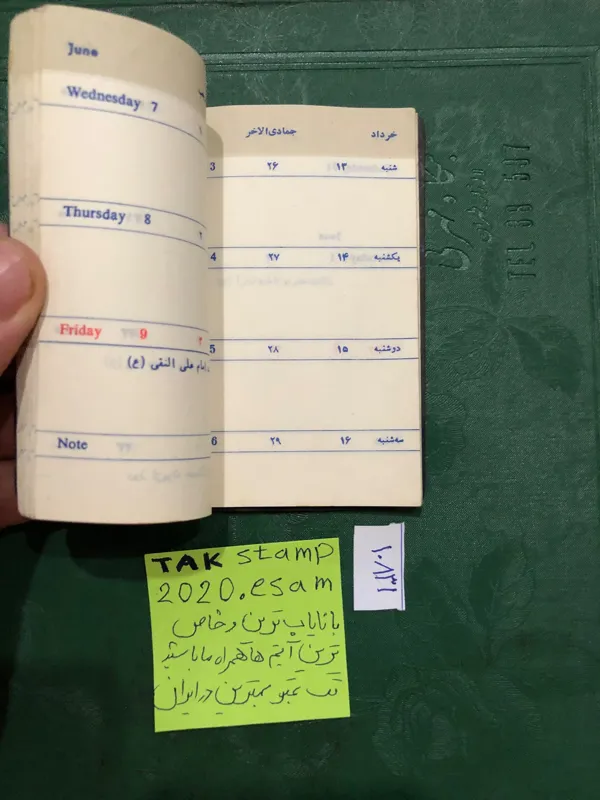 June
Wednesday 7
Thursday 8
Friday 9
امام علی النقی (ع)
Note
خرداد جمادی‌الاخر
شنبه ۱۳ ۲۶ 3
یکشنبه ۱۴ ۲۷ 4
دوشنبه ۱۵ ۲۸ 5
سه‌شنبه ۱۶ ۲۹ 6
TEL 68 597
TAK stamp
2020.esam
با نایاب ترین و خاص
ترین آیتم ها همراه ما باشید
تک تمبر بهترین در ایران
۱۰۸۳۱